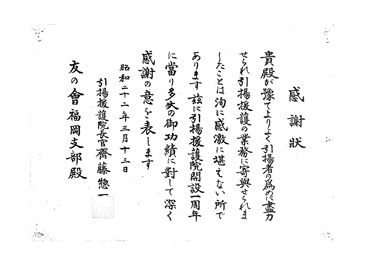 感謝状
貴殿が豫てよりよく引揚者の為めに盡力
せられ引揚援護の業務に寄與せられま
したことは洵に感激に堪えない所で
あります茲に引揚援護院開設一周年
に當り多大の御功績に対して深く
感謝の意を表します
昭和二十二年三月十三日
引揚援護院長官齋藤惣一
友の會福岡支部殿